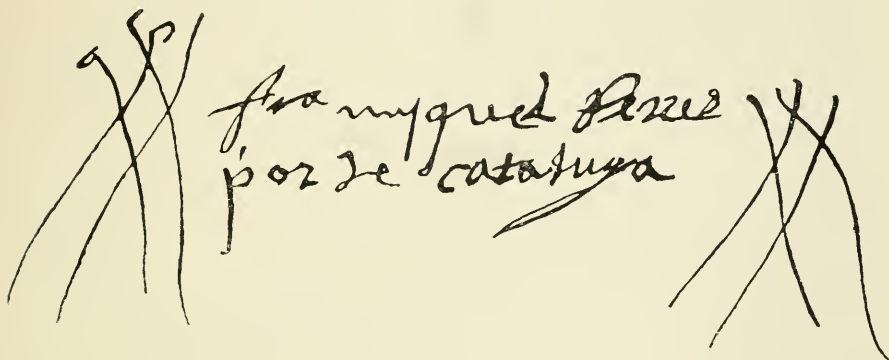 fra myquel ferrer
por de cataluya